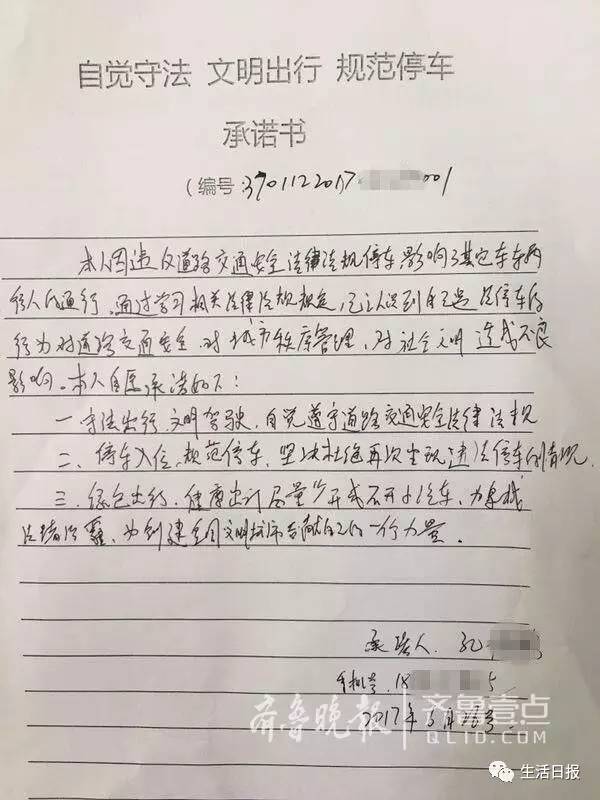 自觉守法 文明出行 规范停车
承诺书
(编号:3701122017 001
本人因违反道路交通安全法律法规停车影响了其它车车辆
行人的通行,通过学习相关法律法规规定,已认识到自己违法停车的
行为对道路交通安全、对城市秩序管理,对社会文明造成不良
影响。本人自愿承诺如下:
一、守法出行,文明驾驶,自觉遵守道路交通安全法律法规
二、停车入位、规范停车,坚决杜绝再次出现违法停车的情况.
三、绿色出行、健康出行尽量少开或不开小汽车,力争减
为创建全国文明城市贡献自己的一份力量.
承诺人.
手机号.18 5
2017年 月 号
齐鲁晚报 齐鲁壹点
QLID.COM
生活日报